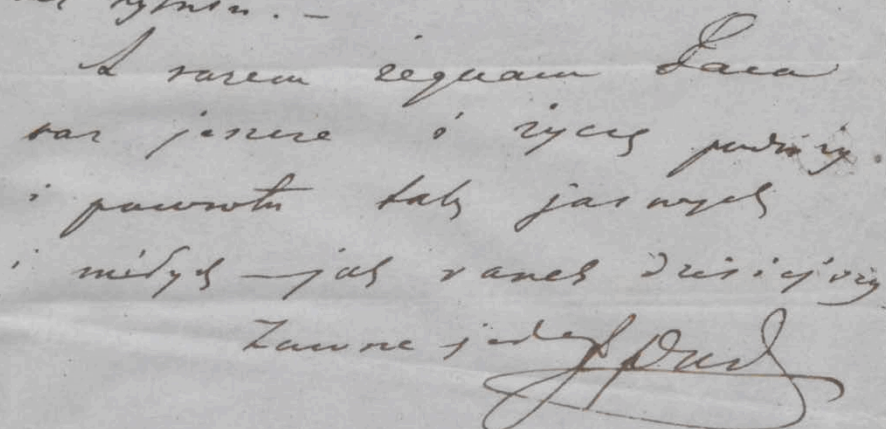 A razem żegnam Pana
raz jeszcze i życzę podróży
i powrotu tak jasnych
i miłych — jak ranek dzisiejszy
Zawsze jeden